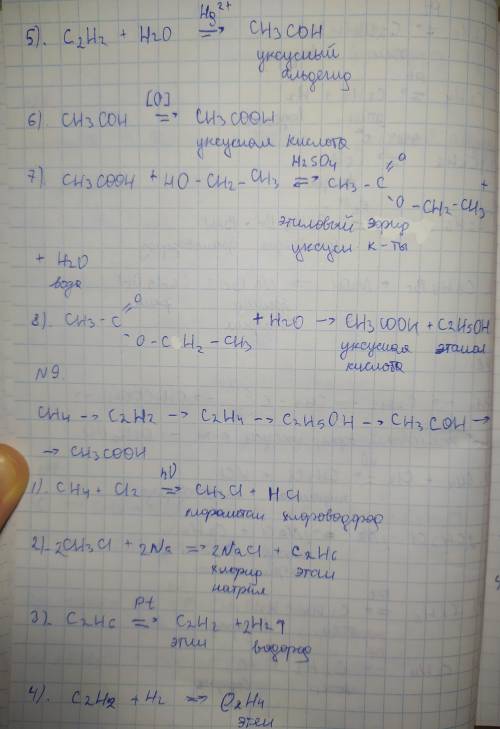 5). C2H2 + H2O Hg2+ ⇒ CH3COH
уксусный
альдегид
6). CH3COH [O] ⇒ CH3COOH
уксусная кислота
7). CH3COOH + HO-CH2-CH3 H2SO4 ⇒ CH3-C =O
O-CH2-CH3 +
этиловый эфир
уксусн к-ты
+ H2O
вода
8). CH3-C =O
-O-CH2-CH3 + H2O → CH3COOH + C2H5OH
уксусная этанол
кислота
N9.
CH4 → C2H2 → C2H4 → C2H5OH → CH3COH →
→ CH3COOH
1). CH4 + Cl2 hν ⇒ CH3Cl + HCl
хлорметан хлороводород
2). 2CH3Cl + 2Na ⇒ 2NaCl + C2H6
хлорид этан
натрия
3). C2H6 Pt ⇒ C2H2 + 2H2↑
этин водород
4). C2H2 + H2 ⇒ C2H4
этен